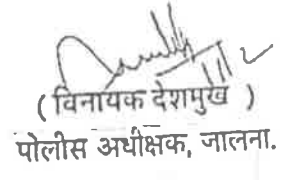 ( विनायक देशमुख )
पोलीस अधीक्षक, जालना.